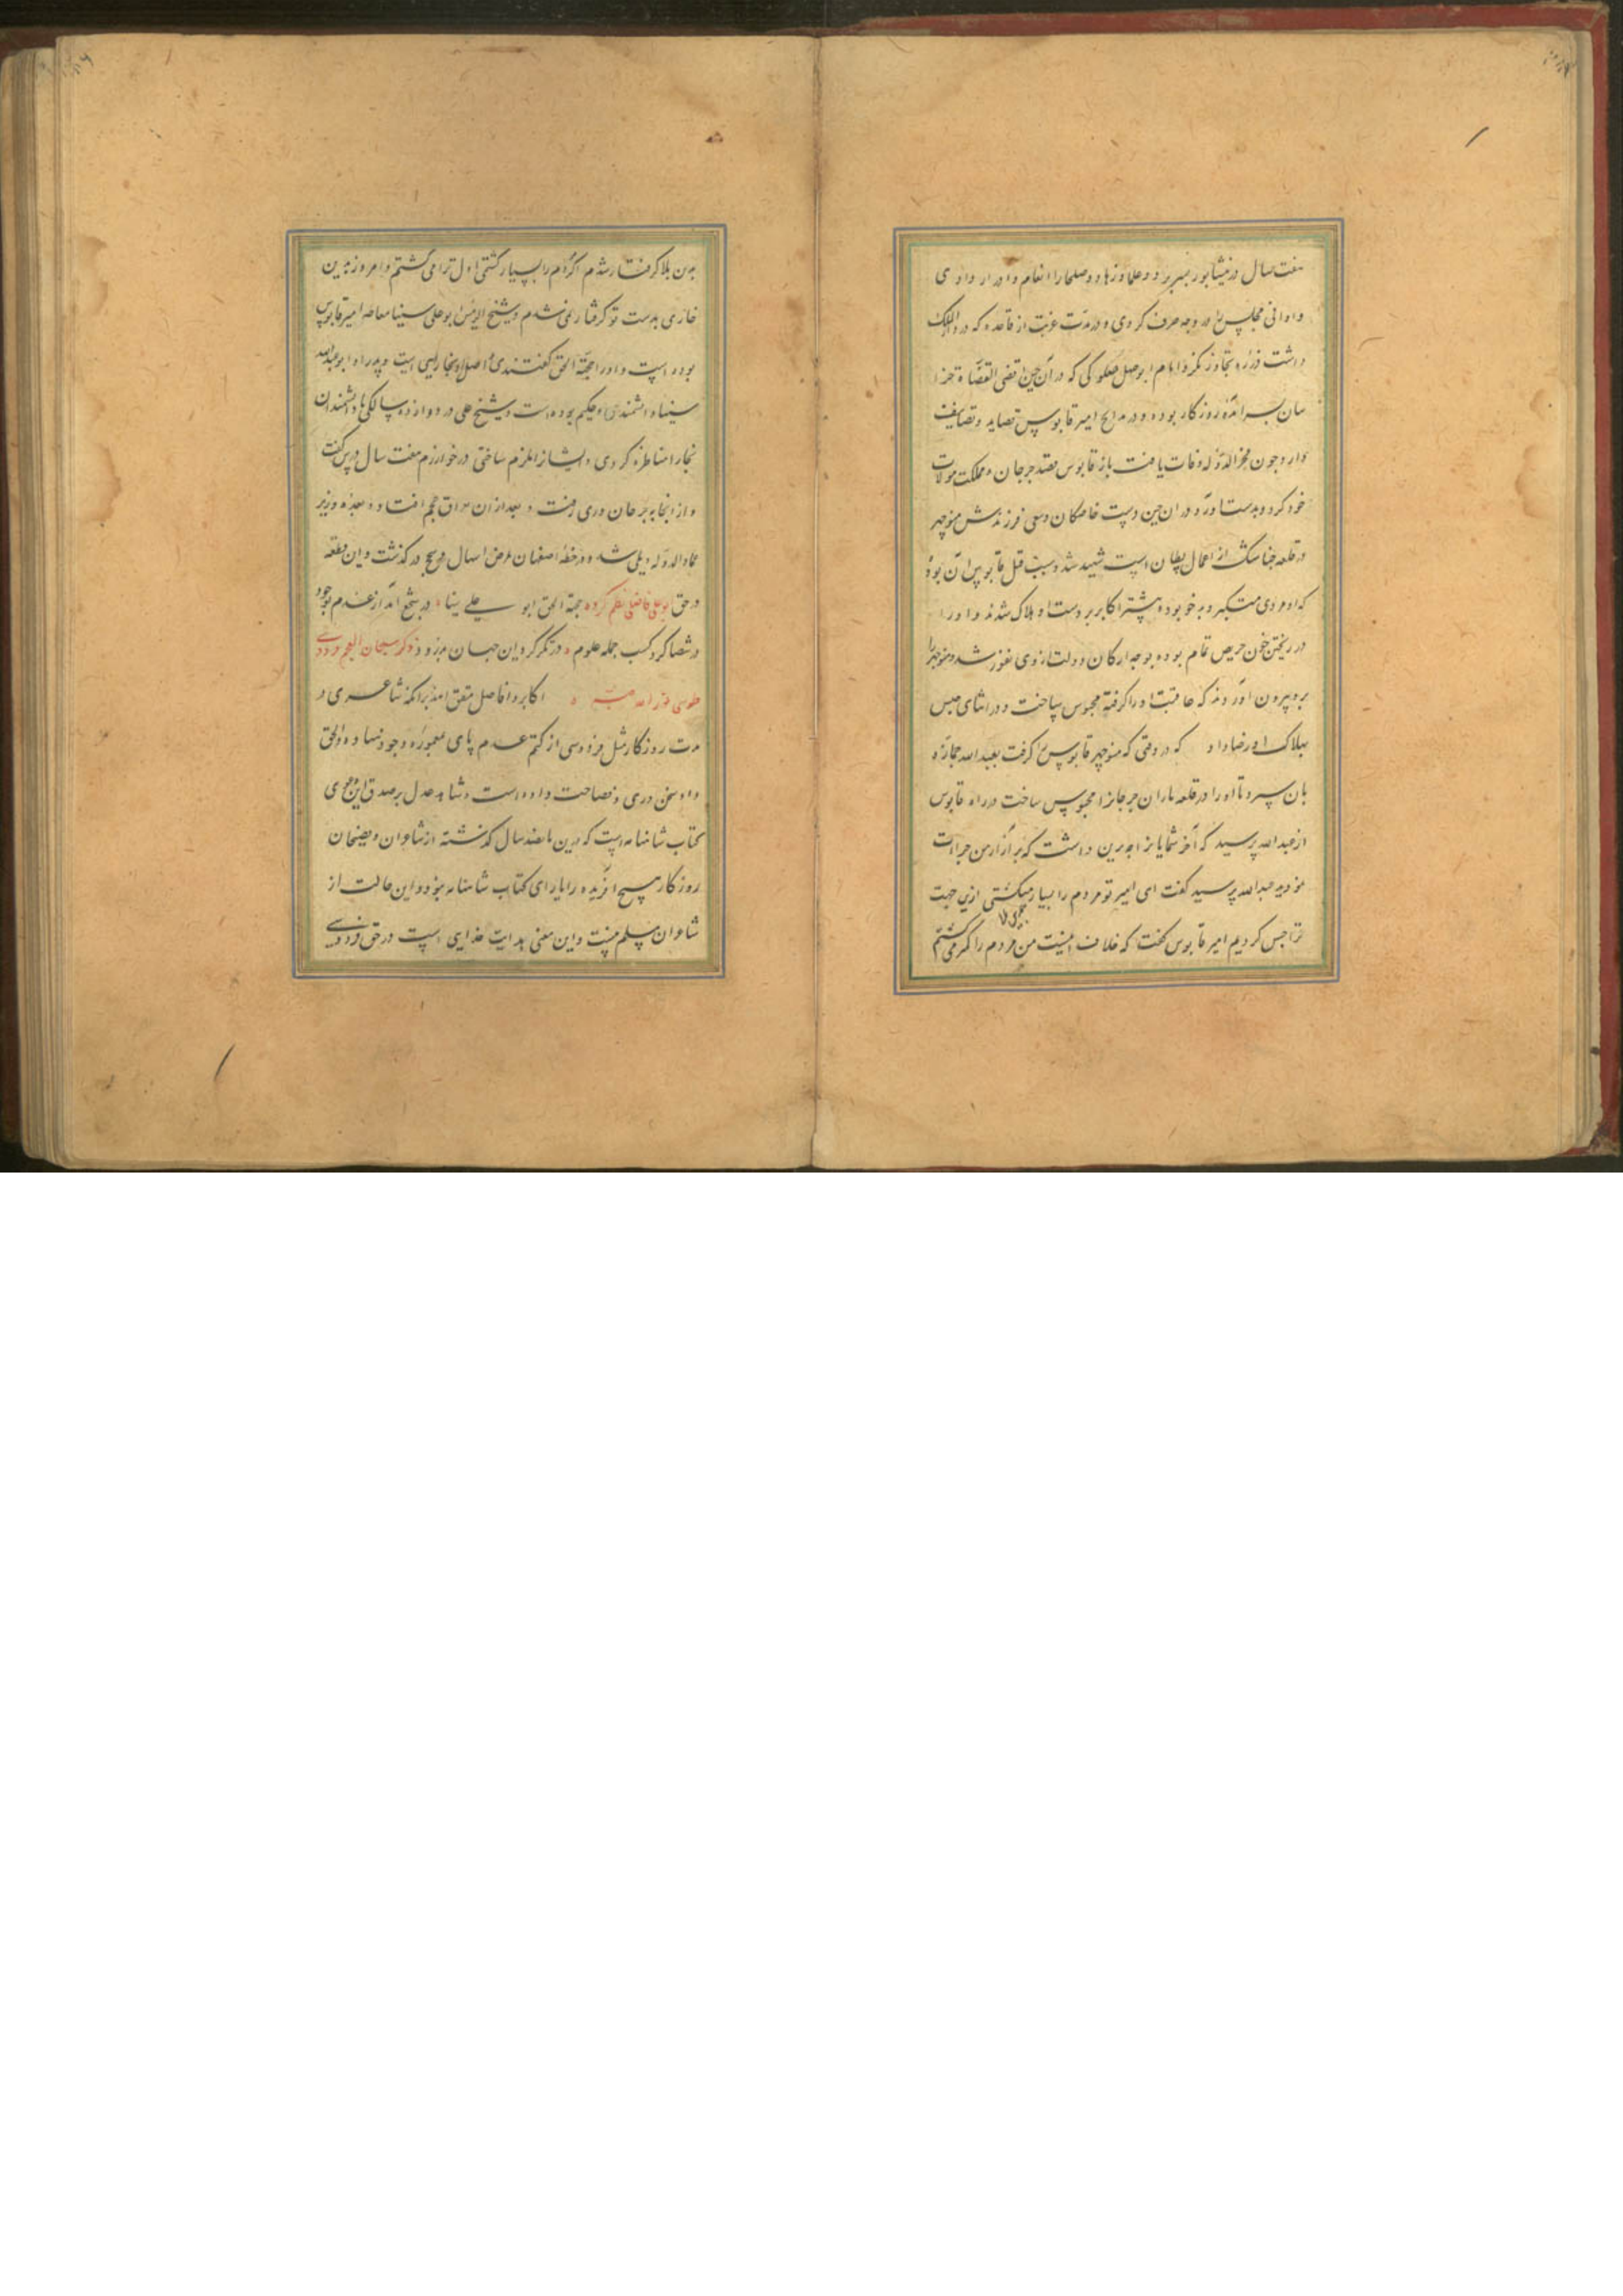 هفت سال در نیشابور بسر برد و علما و زهاد و صلحا را انعام و ادرار دادی
و اوانی مجلس در وجه صرف کردی و در مدت غربت از قاعده که در دار الملک
داشت ذره تجاوز نکرد امام ابو سهل صعلوکی که در آن حین اقضی القضاة خرا
سان سرآمد روزکار بوده و در مدایح امیر قابوس قصاید و تصانیف
دارد چون فخر الدوله وفات یافت باز قابوس قصد جرجان و مملکت
خود کرد و بدست آورد در ان حین بدست خاصکان و سعی فرزندش منوچهر
در قلعه جناشک از اعمال بسطان است شهید شد و سبب قتل قابوس آن بود
که او مردی متکبر و بدخو بود بیشتر اکابر بر دست او هلاک شدند و او را
در ریختن خون حریص تمام بوده بوجه ارکان دولت از وی نفور شده منوچهر را
برو بیرون آوردند که عاقبت او را کرفته محبوس ساخت و در اثنای حبس
بهلاک او رضا داد که در وقتی که منوچهر قابوس را کرفت بعبد الله جمازه
بان سپرد تا او را در قلعه باران جرجان محبوس ساخت در راه قابوس
از عبد الله پرسید که آخر شمایانرا چه برین داشت که بر آزار من جراات
نمودید عبد الله کفت ای امیر تو مردم را بسیار میکشتی ازین جهت
ترا حبس کردیم امیر قابوس کفت که خلاف اینست من مردم را کم می کشتم
بدین بلا کرفتار شدم اکر مردم را بسیار کشتی اول ترا می کشتم و امروز بدین
خاری بدست تو کرفتار نمی شدم و شیخ الرئیس بو علی سینا معاصر امیر قابوس
بوده است و او را حجة الحق کفتندی و اصل او بخاراییست و پدر او ابو عبد الله
سینا دانشمندی و حکیم بوده است و شیخ علی در دوازده سالکی با دانشمندان
بخارا مناظره کردی و ایشانرا ملزم ساختی در خوارزم هفت سال درس کفت
و از آنجا به جرجان و ری رفت و بعد از ان بعراق عجم افتاد و بعده وزیر
عماد الدوله دیلمی شد و در خطه اصفهان بمرض اسهال و سجح در کذشت و این قطعه
در حق بو علی فاضلی نظم کرده حجة الحق ابو علی سینا در شجع آمد از عدم بوجود
در شصا کرد کسب جمله علوم در تکز کرد این جهان بدرود ذکر سبحان العجم فردوسی
طوسی اکابر و افاضل متفق اند برانکه شاعری در
مدت روزکار مثل فردوسی از کتم عدم پای بمعموره وجود ننهاده و الحق
داد سخن دری و فصاحت داده است و شاهد عدل بر صدق این دعوی
کتاب شاهنامه است که درین پانصد سال کذشته از شاعران و فصیحان
روزکار هیچ آفریده را یارای کتاب شاهنامه نبود و این حالت از
شاعران مسلم نیست و این معنی هدایت خدایی است در حق فردوسی